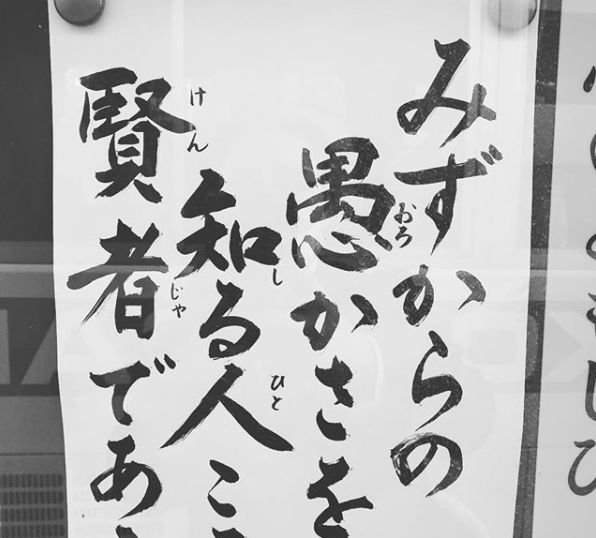 みずからの
愚かさを
知る人こ
賢者であ
おろ
し
ひと
けん
じゃ